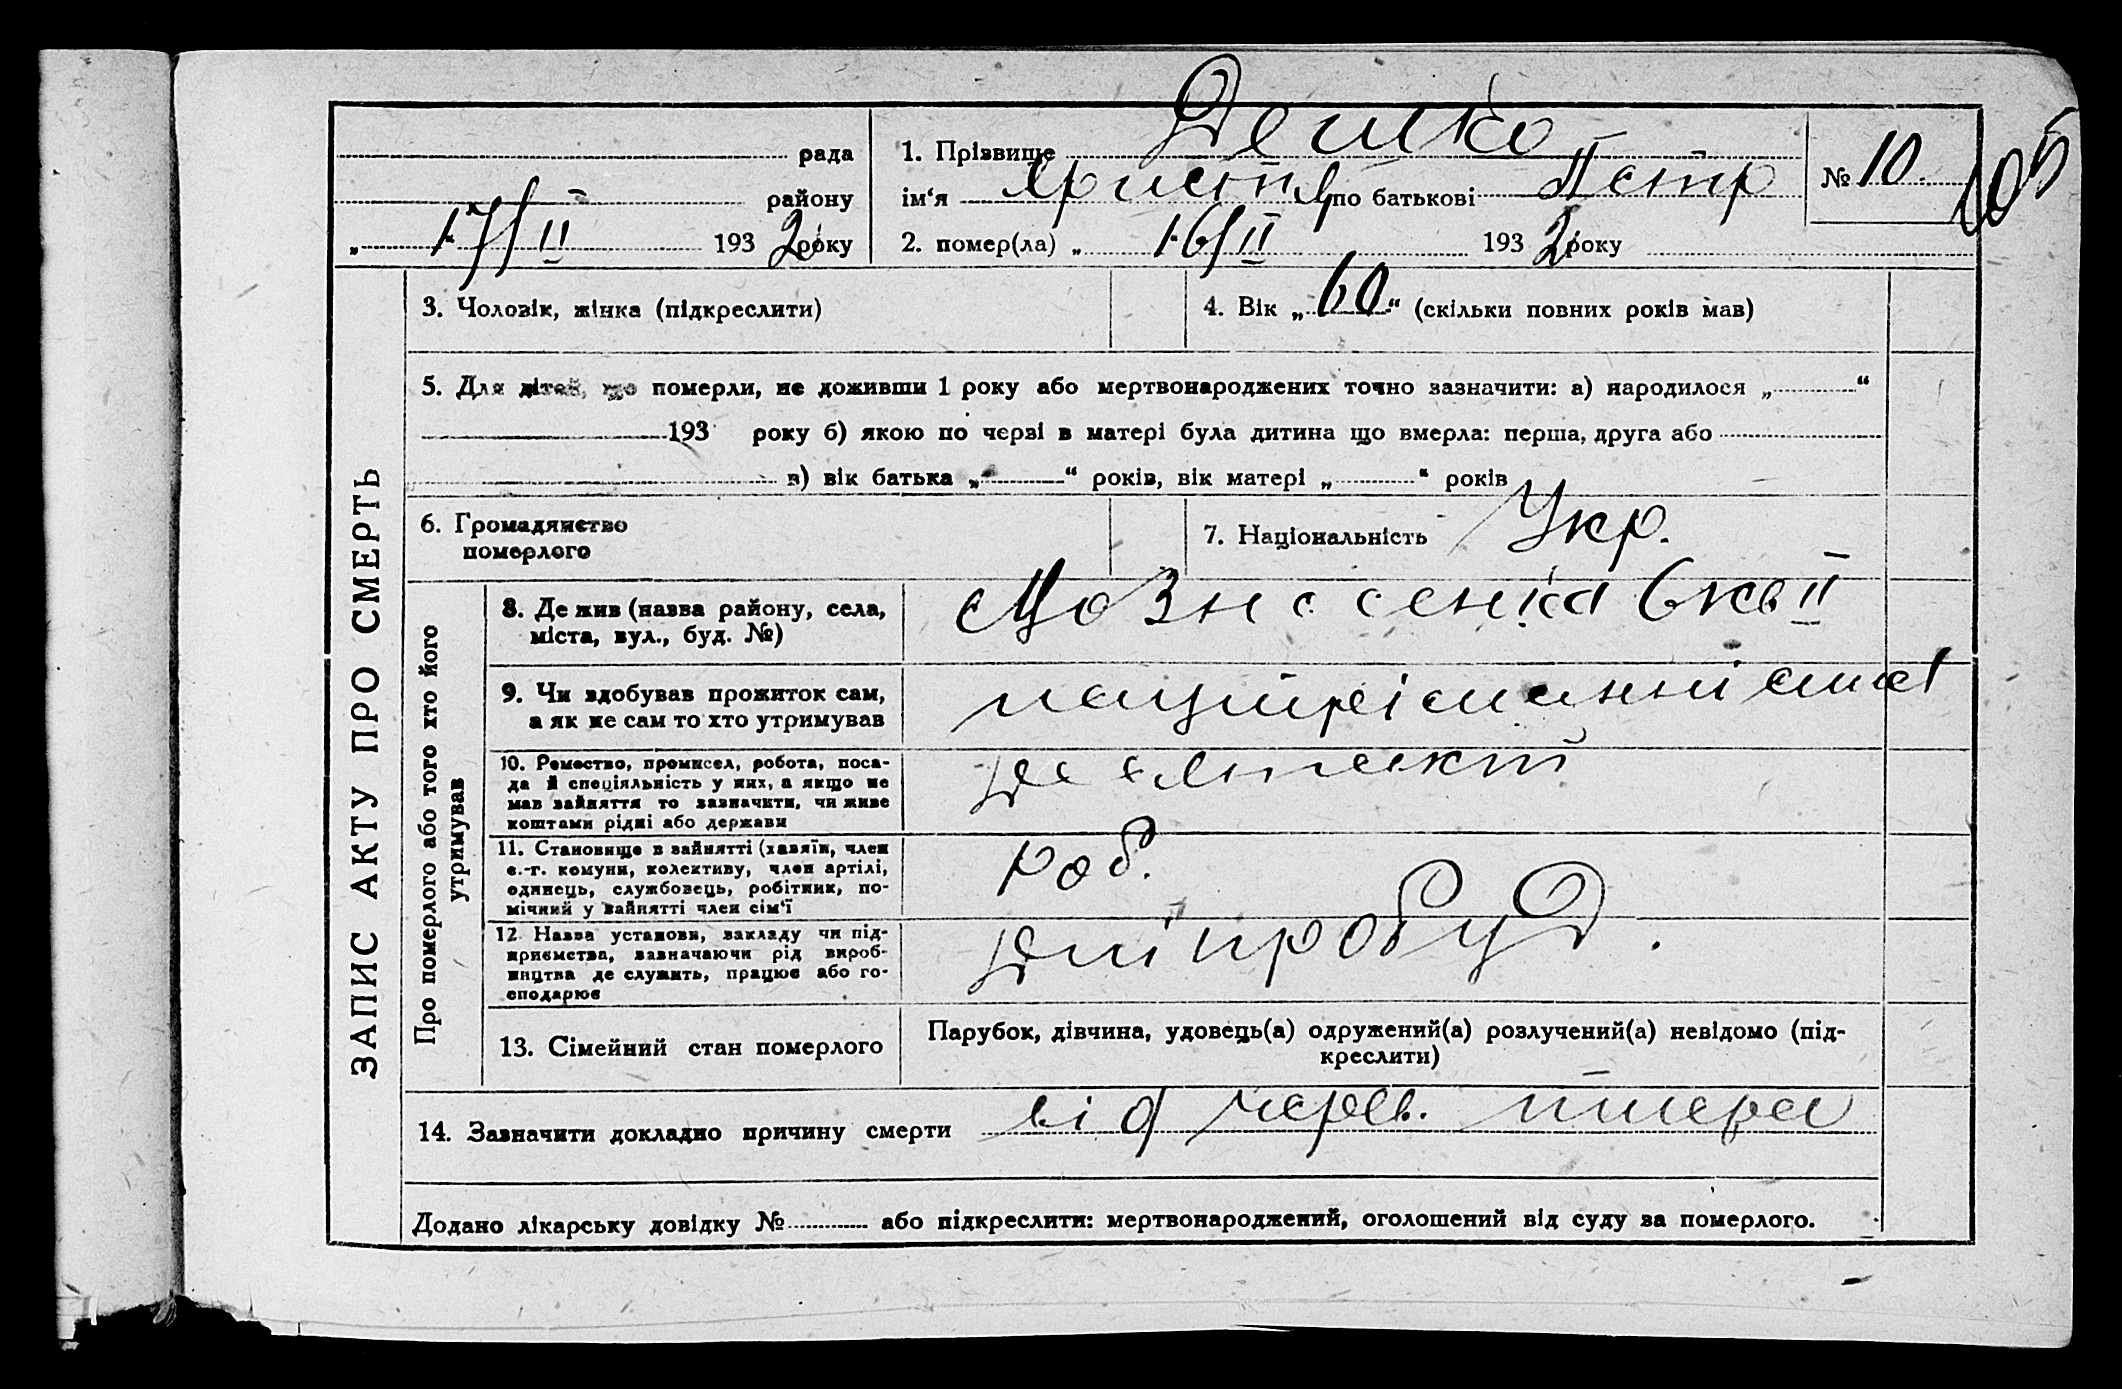 рада
району
„ 17/II 1932 року
1. Прізвище Демко
ім'я Христя по батькові Петр
2. помер(ла) „ 16/II 1932 року
№ 10
105
ЗАПИС АКТУ ПРО СМЕРТЬ
3. Чоловік, жінка (підкреслити)
4. Вік „ 60 “ (скільки повних років мав)
5. Для дітей, що померли, не доживши 1 року або мертвонароджених точно зазначити: а) народилося „ “
193 року б) якою по черзі в матері була дитина що вмерла: перша, друга або
в) вік батька „ “ років, вік матері „ “ років
6. Громадянство
померлого
7. Національність Укр.
Про померлого або того хто його
утримував
8. Де жив (назва району, села,
міста, вул., буд. №)
II
9. Чи здобував прожиток сам,
а як не сам то хто утримував
10. Ремество, промисел, робота, поса-
да й спеціяльність у них, а якщо не
мав зайняття то зазначити, чи живе
коштами рідні або держави
11. Становище в зайнятті (хазяїн, член
с.-г. комуни, колективу, член артілі,
одинець, службовець, робітник, по-
мічний у зайнятті член сім'ї
роб.
12. Назва установи, закладу чи під-
приємства, зазначаючи рід вироб-
ництва де служить, працює або го-
сподарює
Дніпробуд.
13. Сімейний стан померлого
Парубок, дівчина, удовець(а) одружений(а) розлучений(а) невідомо (під-
креслити)
14. Зазначити докладно причину смерти від черев. тифа
Додано лікарську довідку № або підкреслити: мертвонароджений, оголошений від суду за померлого.